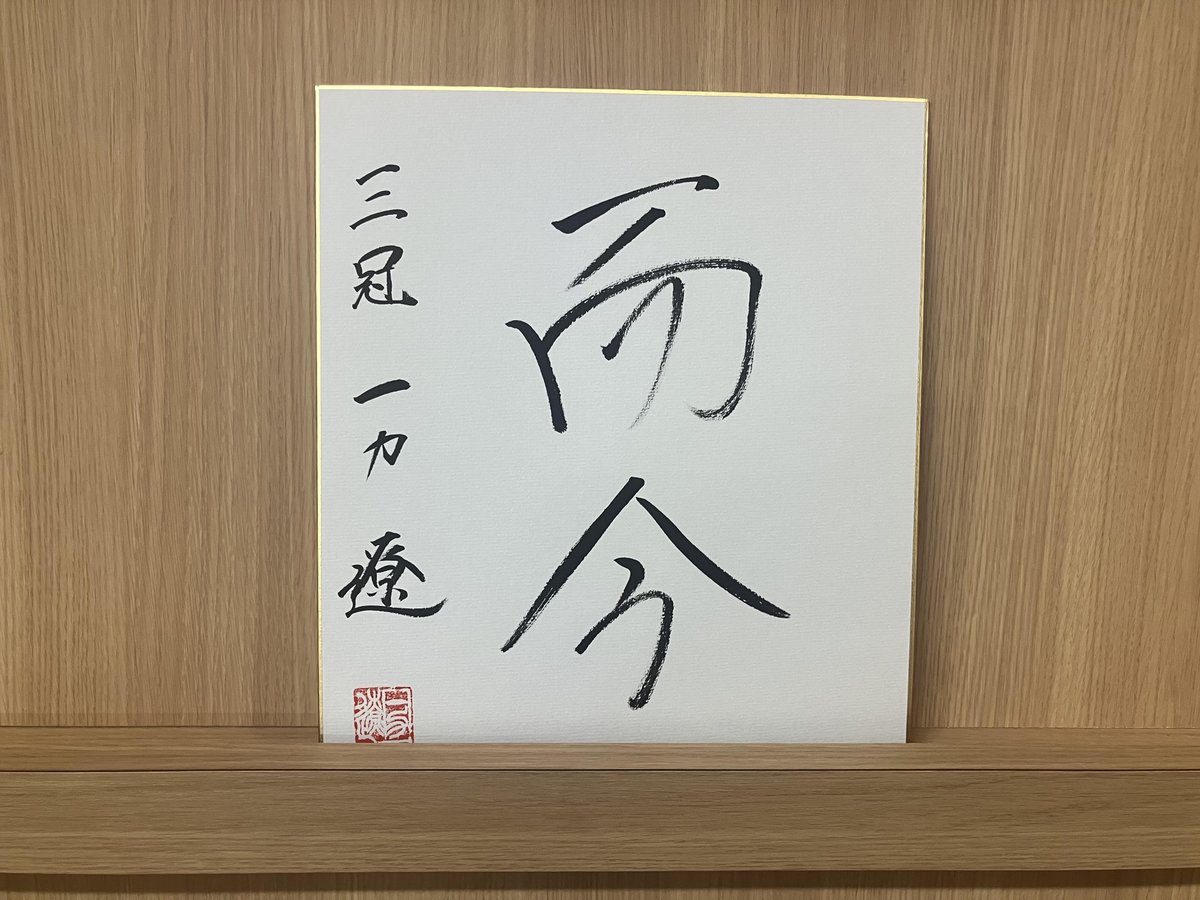 而今
三冠 一力 遼